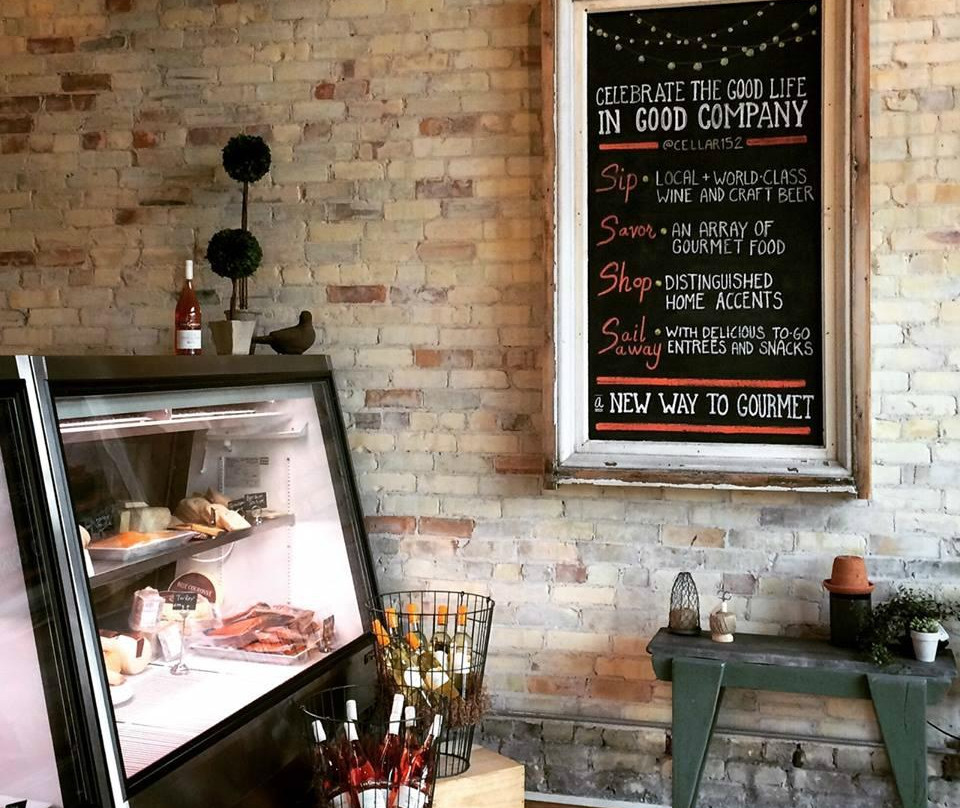 CELEBRATE THE GOOD LIFE
IN GOOD COMPANY
@CELLAR152
Sip • LOCAL + WORLD-CLASS
WINE AND CRAFT BEER
Savor • AN ARRAY OF
GOURMET FOOD
Shop • DISTINGUISHED
HOME ACCENTS
Sail • WITH DELICIOUS TO-GO
away ENTREÉS AND SNACKS
a NEW WAY TO GOURMET
Turkey